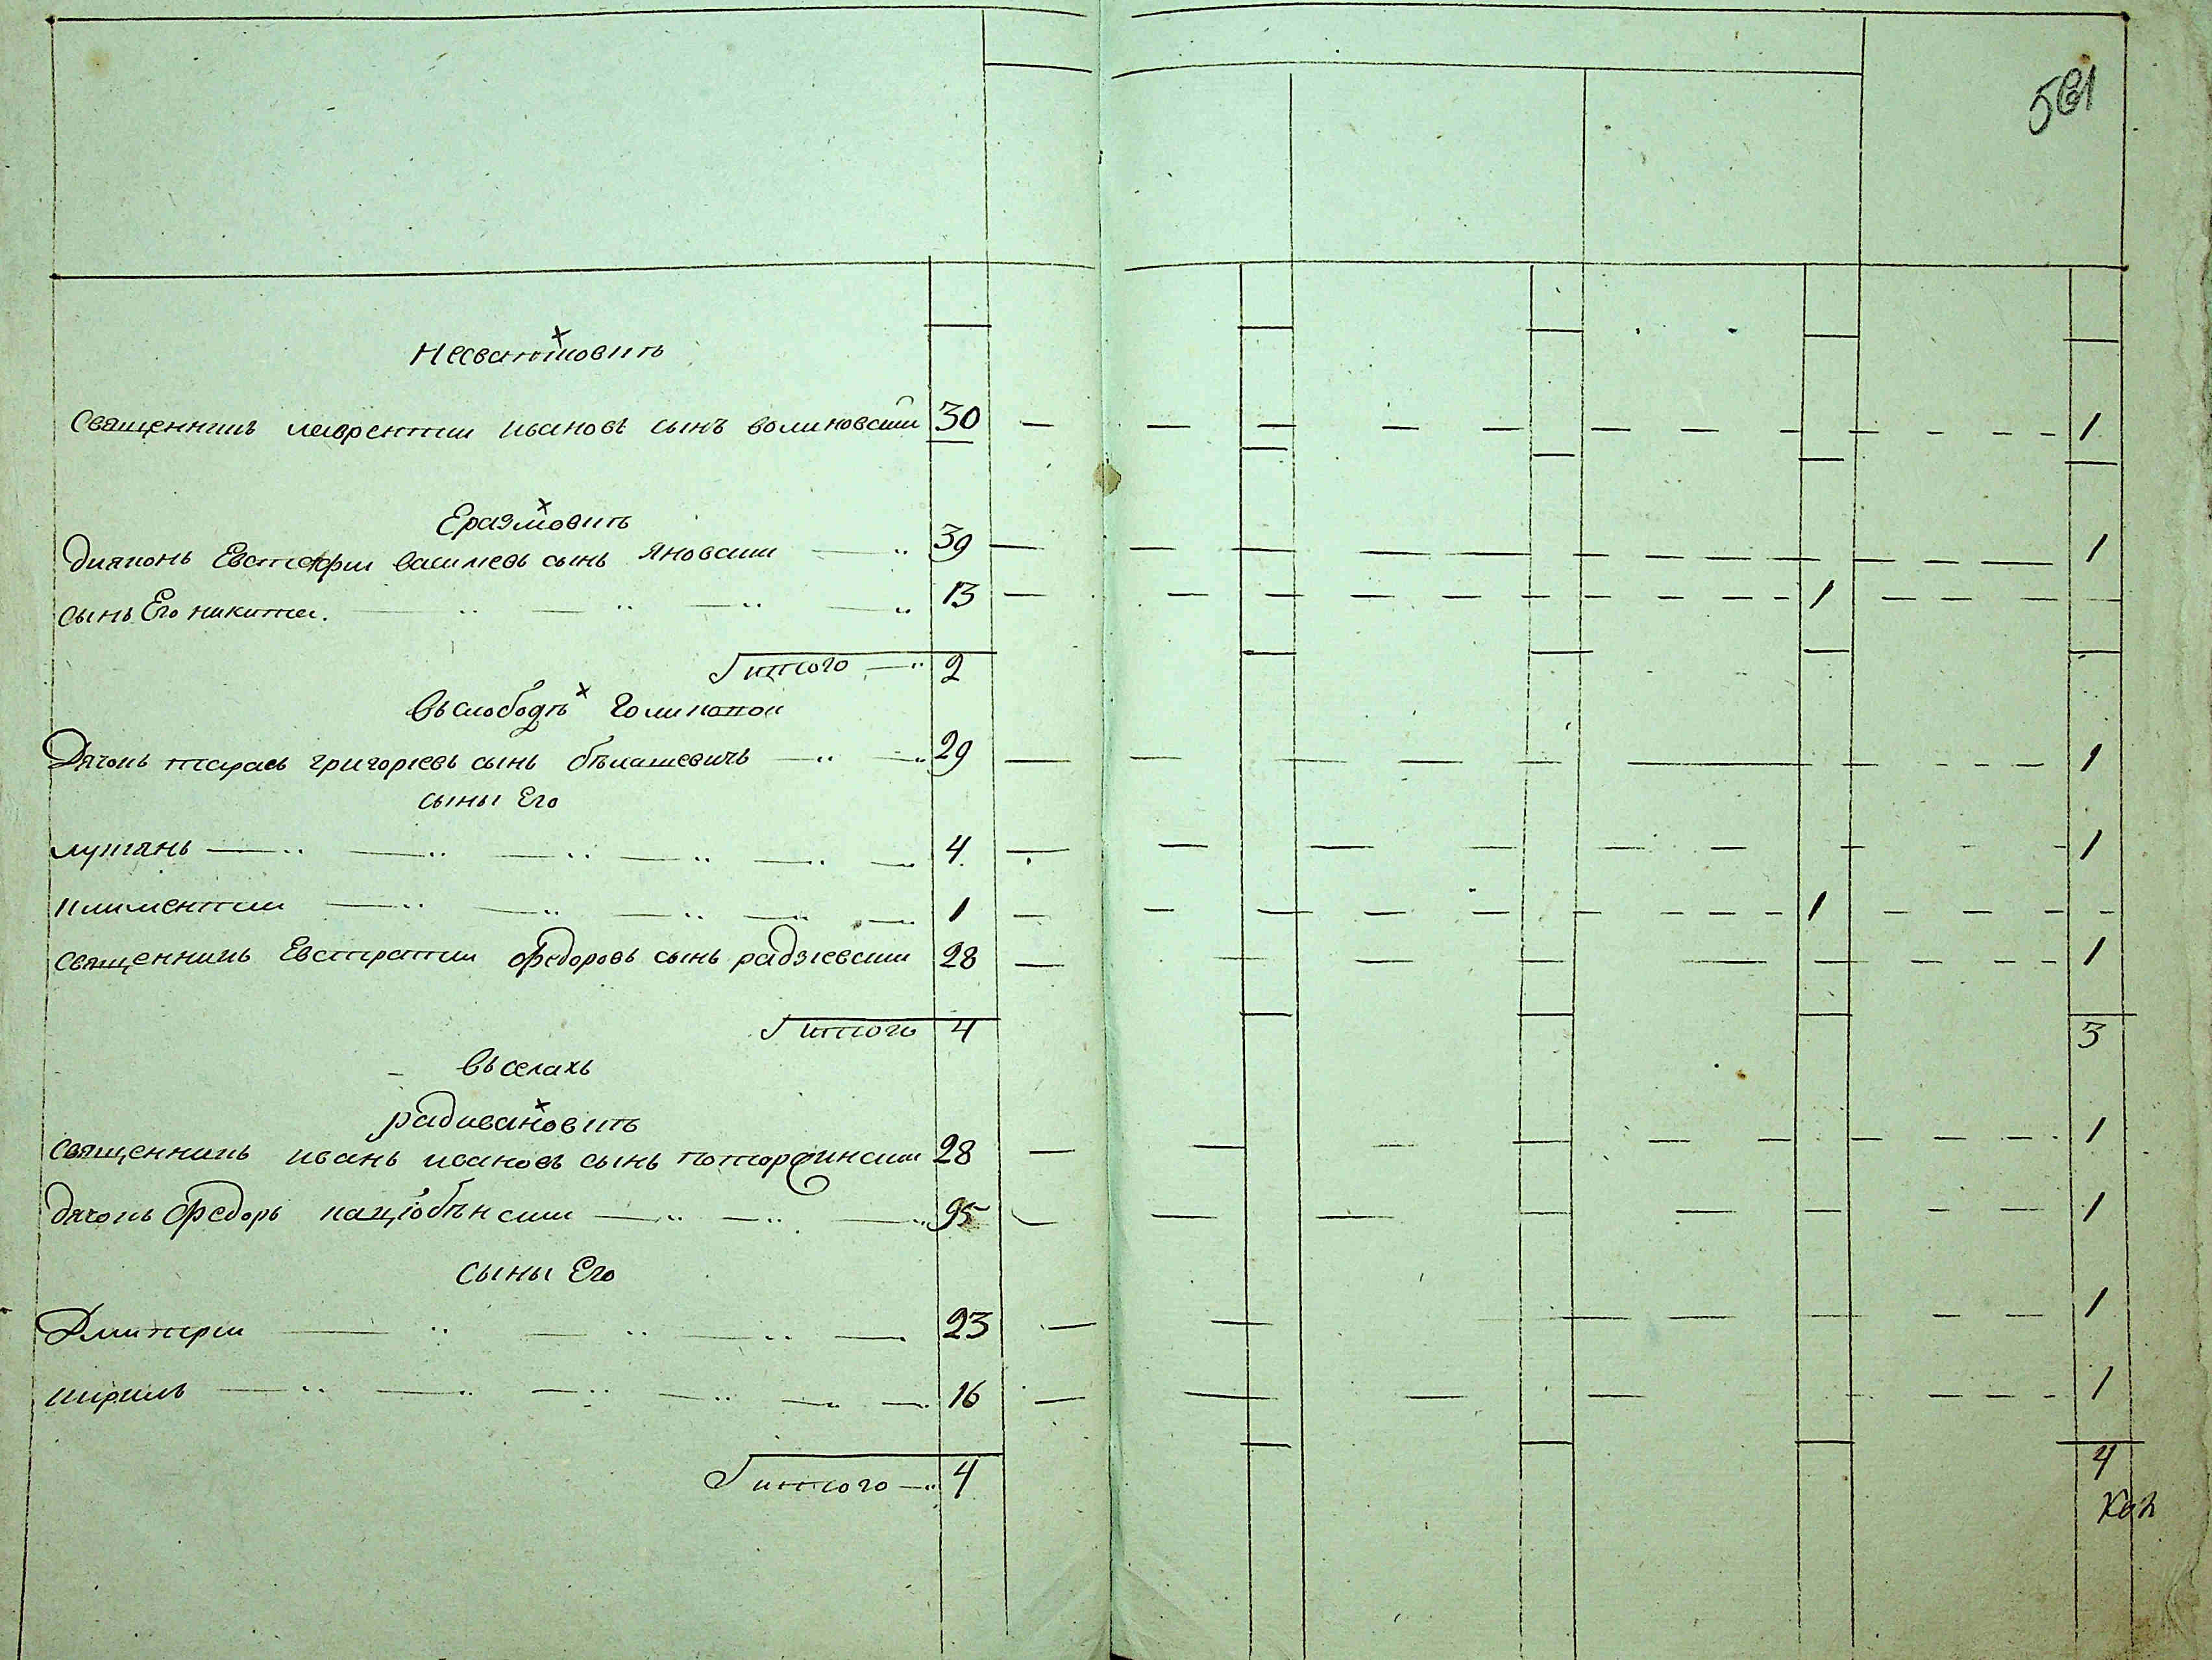 561
Несватковѣ
священникъ лаврентии ивановъ сынъ волиновскии 30 1
Еразмовѣ
дияконъ Евстафии василевъ сынъ Яновскии 39 1
сынъ Его никита. 13 1
итого 2
въ слободѣ Голикопои
Дячокъ тарасъ григориевъ сынъ бѣлашевичъ 29 1
сыны Его
лукянъ 4 1
климентии 1 1
священникъ Евстратии Федоровъ сынъ радзиевскии 28 1
итого 4 3
въ селахъ
радивановкѣ
священникъ иванъ ивановъ сынъ 28 1
дячокъ Федоръ 95 1
сыны Его
Дмитрии 23 1
кирилъ 16 1
итого 4 4